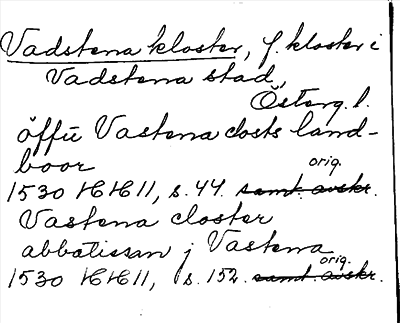 Vadstena kloster, f. kloster i
Vadstena stad,
Österg. l.
öffü Vastena closts land-
boor
orig.
1530 HH 11, s. 44. samt. avskr.
Vastena closter
abbatissan j Vastena
orig.
1530 HH 11, s. 152. samt. avskr.